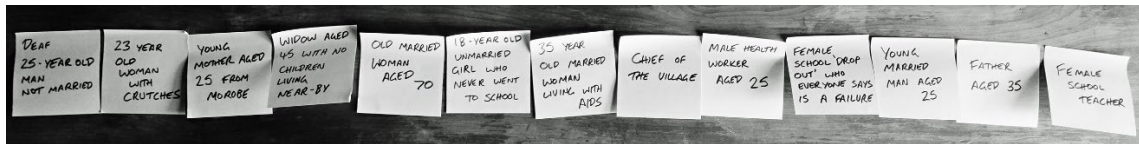 DEAF
25-YEAR OLD
MAN
NOT MARRIED
23 YEAR
OLD
WOMAN
WITH
CRUTCHES
YOUNG
MOTHER AGED
25 FROM
MOROBE
WIDOW AGED
45 WITH NO
CHILDREN
LIVING
NEAR-BY
OLD MARRIED
WOMAN
AGED
70
18-YEAR OLD
UNMARRIED
GIRL WHO
NEVER WENT
TO SCHOOL
35 YEAR
OLD MARRIED
WOMAN
LIVING WITH
AIDS
CHIEF OF
THE VILLAGE
MALE HEALTH
WORKER
AGED 25
FEMALE
SCHOOL 'DROP
OUT' WHO
EVERYONE SAYS
IS A FAILURE
YOUNG
MARRIED
MAN AGED
25
FATHER
AGED 35
FEMALE
SCHOOL
TEACHER